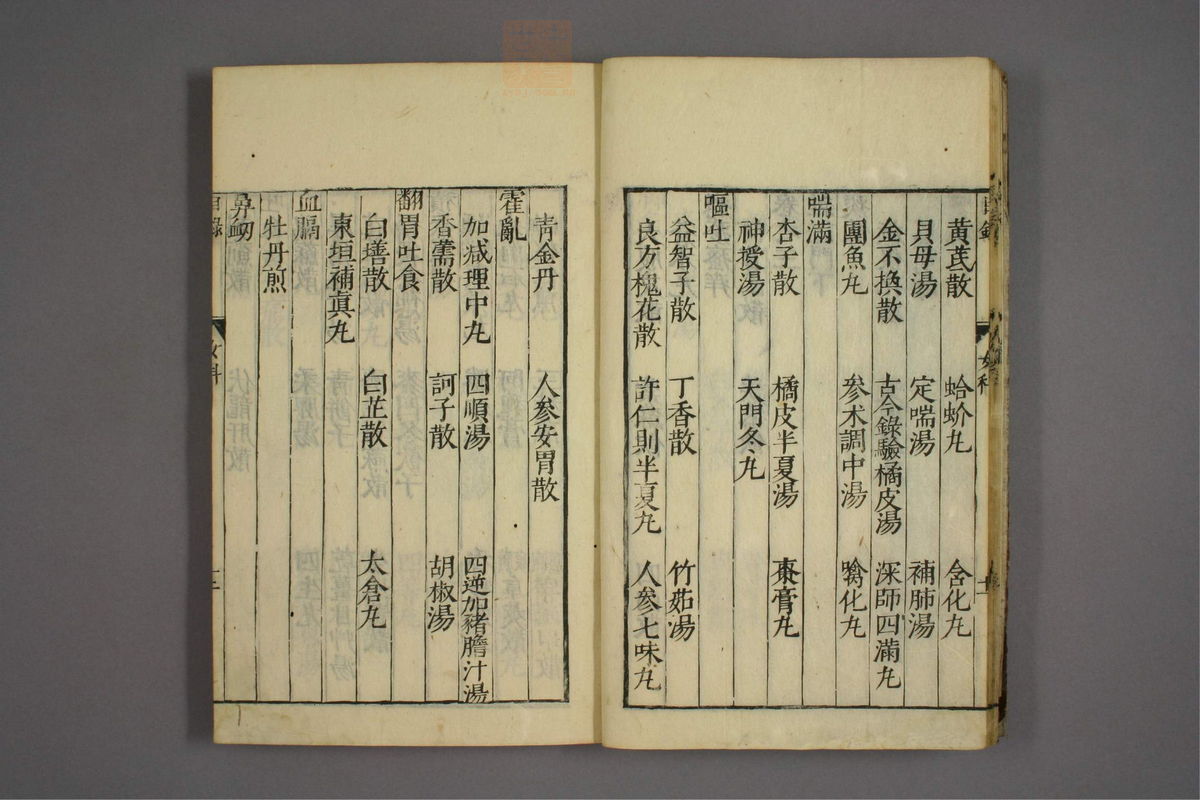 黃芪散　蛤蚧丸　含化丸
貝母湯　定喘湯　補肺湯
金不換散　古今錄驗橘皮湯　深師四滿丸
團魚丸　參术調中湯　噙化丸
喘滿
杏子散　橘皮半夏湯　棗膏丸
神授湯　天門冬丸
嘔吐
益智子散　丁香散　竹茹湯
良方槐花散　許仁則半夏丸　人參七味丸
青金丹　人參安胃散
霍亂
加減理中丸　四順湯　四逆加豬膽汁湯
香薷散　訶子散　胡椒湯
翻胃吐食
白墡散　白芷散　太倉丸
東垣補真丸
血膈
牡丹煎
鼻衄
目錄　女科